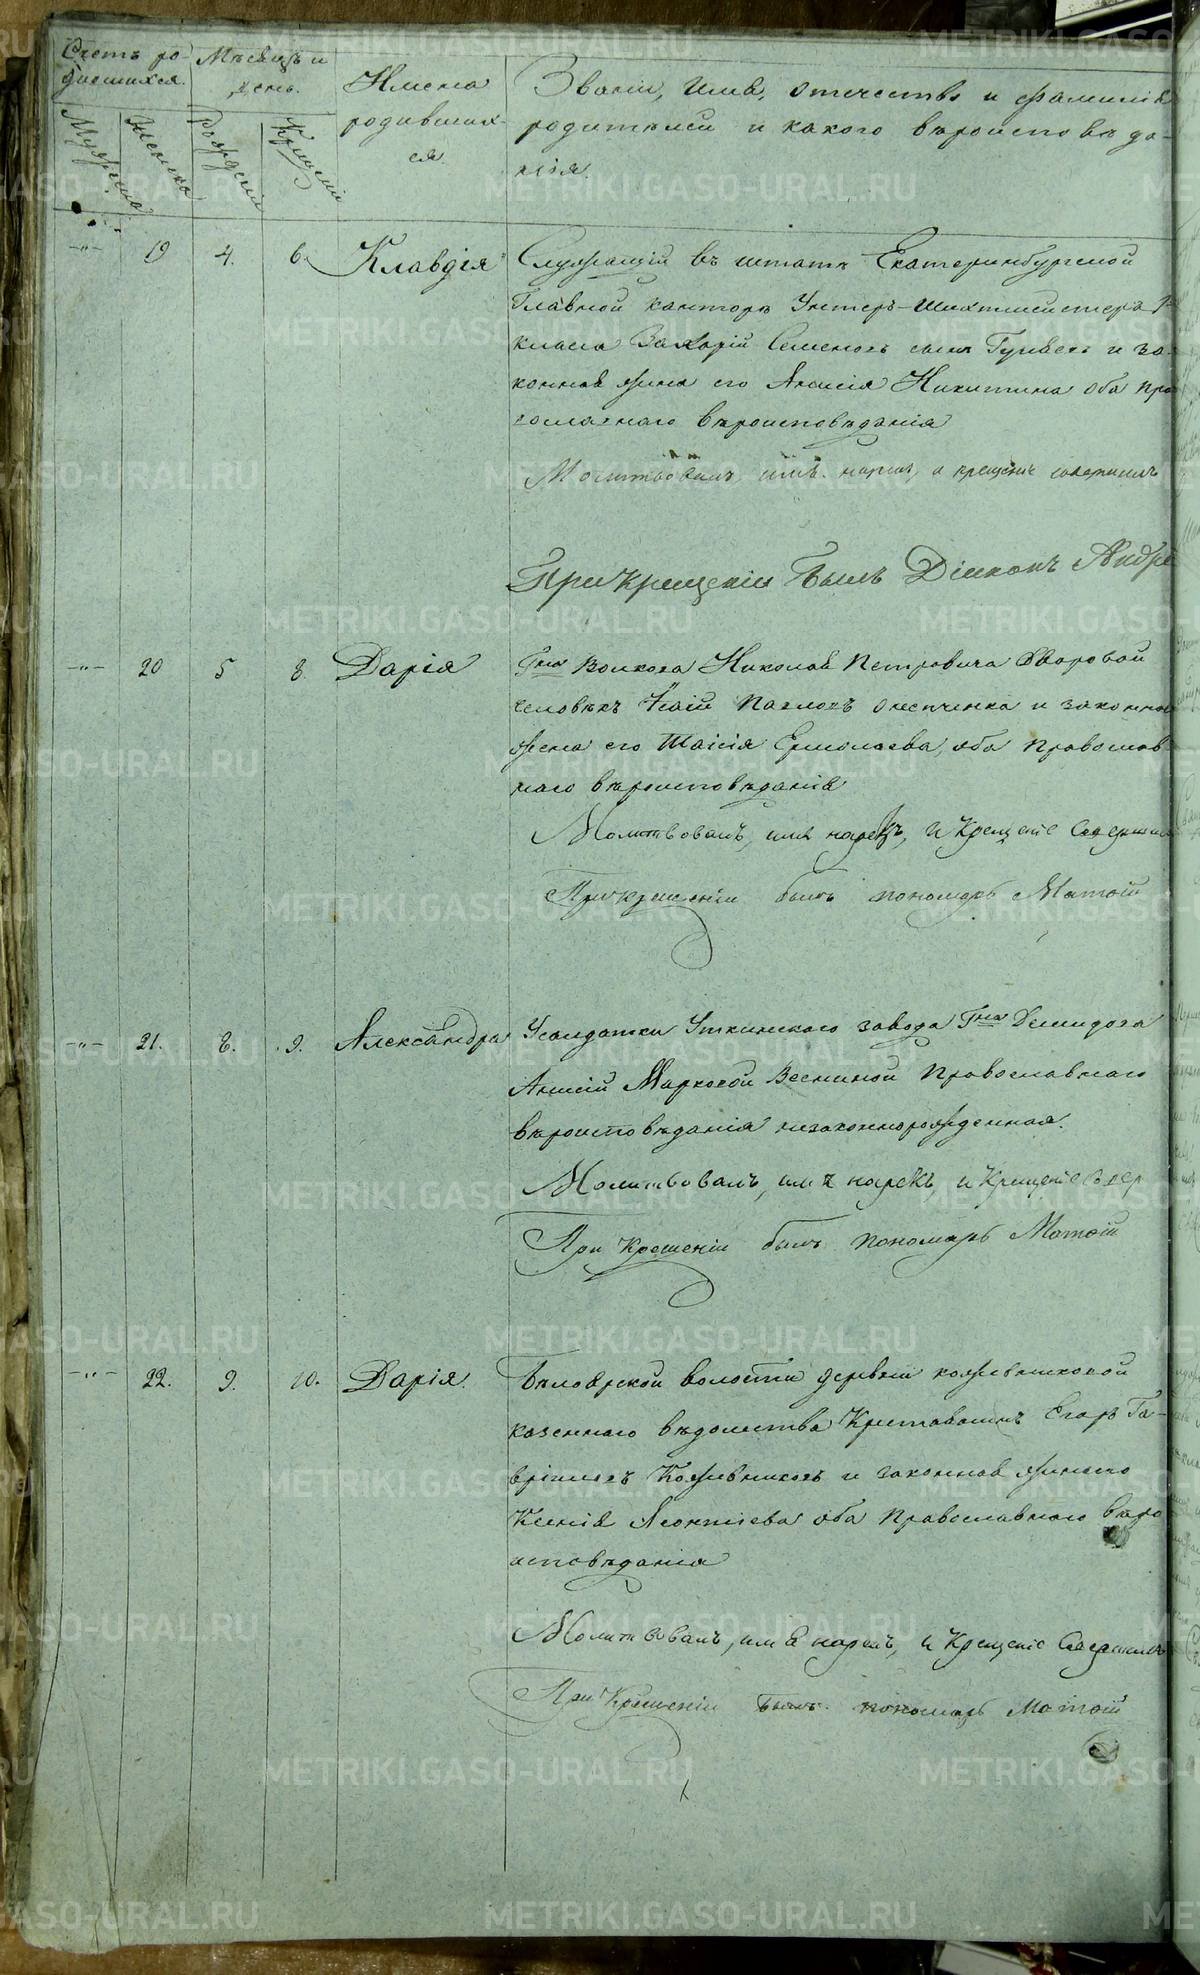 Счетъ ро-
дившихся.
Мѣсяцъ и
день.
Имена
родивших-
ся.
Званіе, имя, отечество и фамилія
родителей и какого вѣроисповѣда-
нія.
Мужеска
Женска
Рожденія
Крещенія
19 4. 6. Клавдія
Служащій въ штатѣ Екатеринбургской
Главной канторы Унтеръ-шихтмейстера
класса Захарій Семеновъ сынъ и за-
конная жена его Анисія Никитина оба пра-
вославнаго вѣроисповѣданія
Молитвовалъ, имя нарекъ, и крещеніе совершилъ
При крещеніи былъ Діаконъ Андре
20 5 8. Дарія
Гна Волкова Николая Петровича дворовой
человѣкъ Павловъ и законная
жена его Таисія Ермолаева, оба православ
наго вѣроисповѣданія
Молитвовалъ, имя нарекъ, и Крещеніе Соверши
При крещеніи былъ пономарь Матѳій
21. 8. 9. Александра
Усолдатки Уткинскаго завода Гна Демидова
Анисіи Марковой Весниной Православнаго
вѣроисповѣданія незаконнорожденная.
Молитвовалъ, имя нарекъ, и Крещеніе
При Крещеніи былъ пономарь Матѳій
22. 9. 10. Дарія.
Бѣлоярской волости деревни кожевниковой
казеннаго вѣдомства Крестьянинъ Егоръ Га-
вріиловъ Кожевниковъ и законная жена его
Ксенія Леонтіева оба Православнаго вѣро
исповѣданія
Молитвовалъ, имя нарекъ, и Крещеніе Совершилъ
При Крещеніи былъ пономарь Матѳій
METRIKI.GASO-URAL.RU